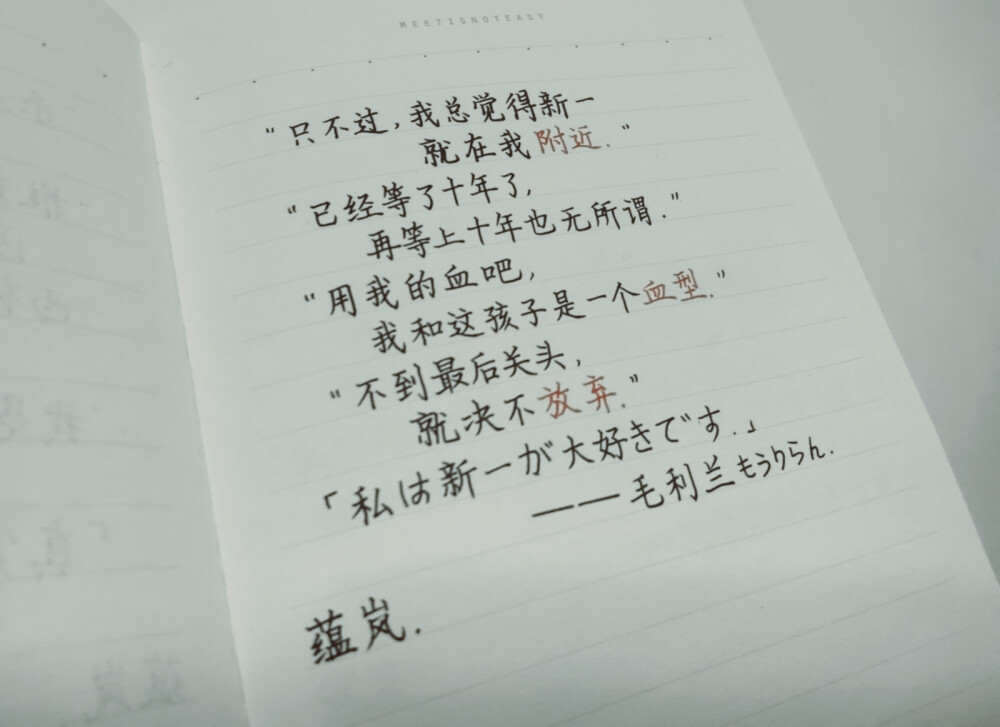 MEETISNOTEASY
"只不过,我总觉得新一
就在我附近."
"已经等了十年了,
再等上十年也无所谓."
"用我的血吧,
我和这孩子是一个血型."
"不到最后关头,
就决不放弃."
「私は新一が大好きです.」
——毛利兰もうりらん.
蕴岚.